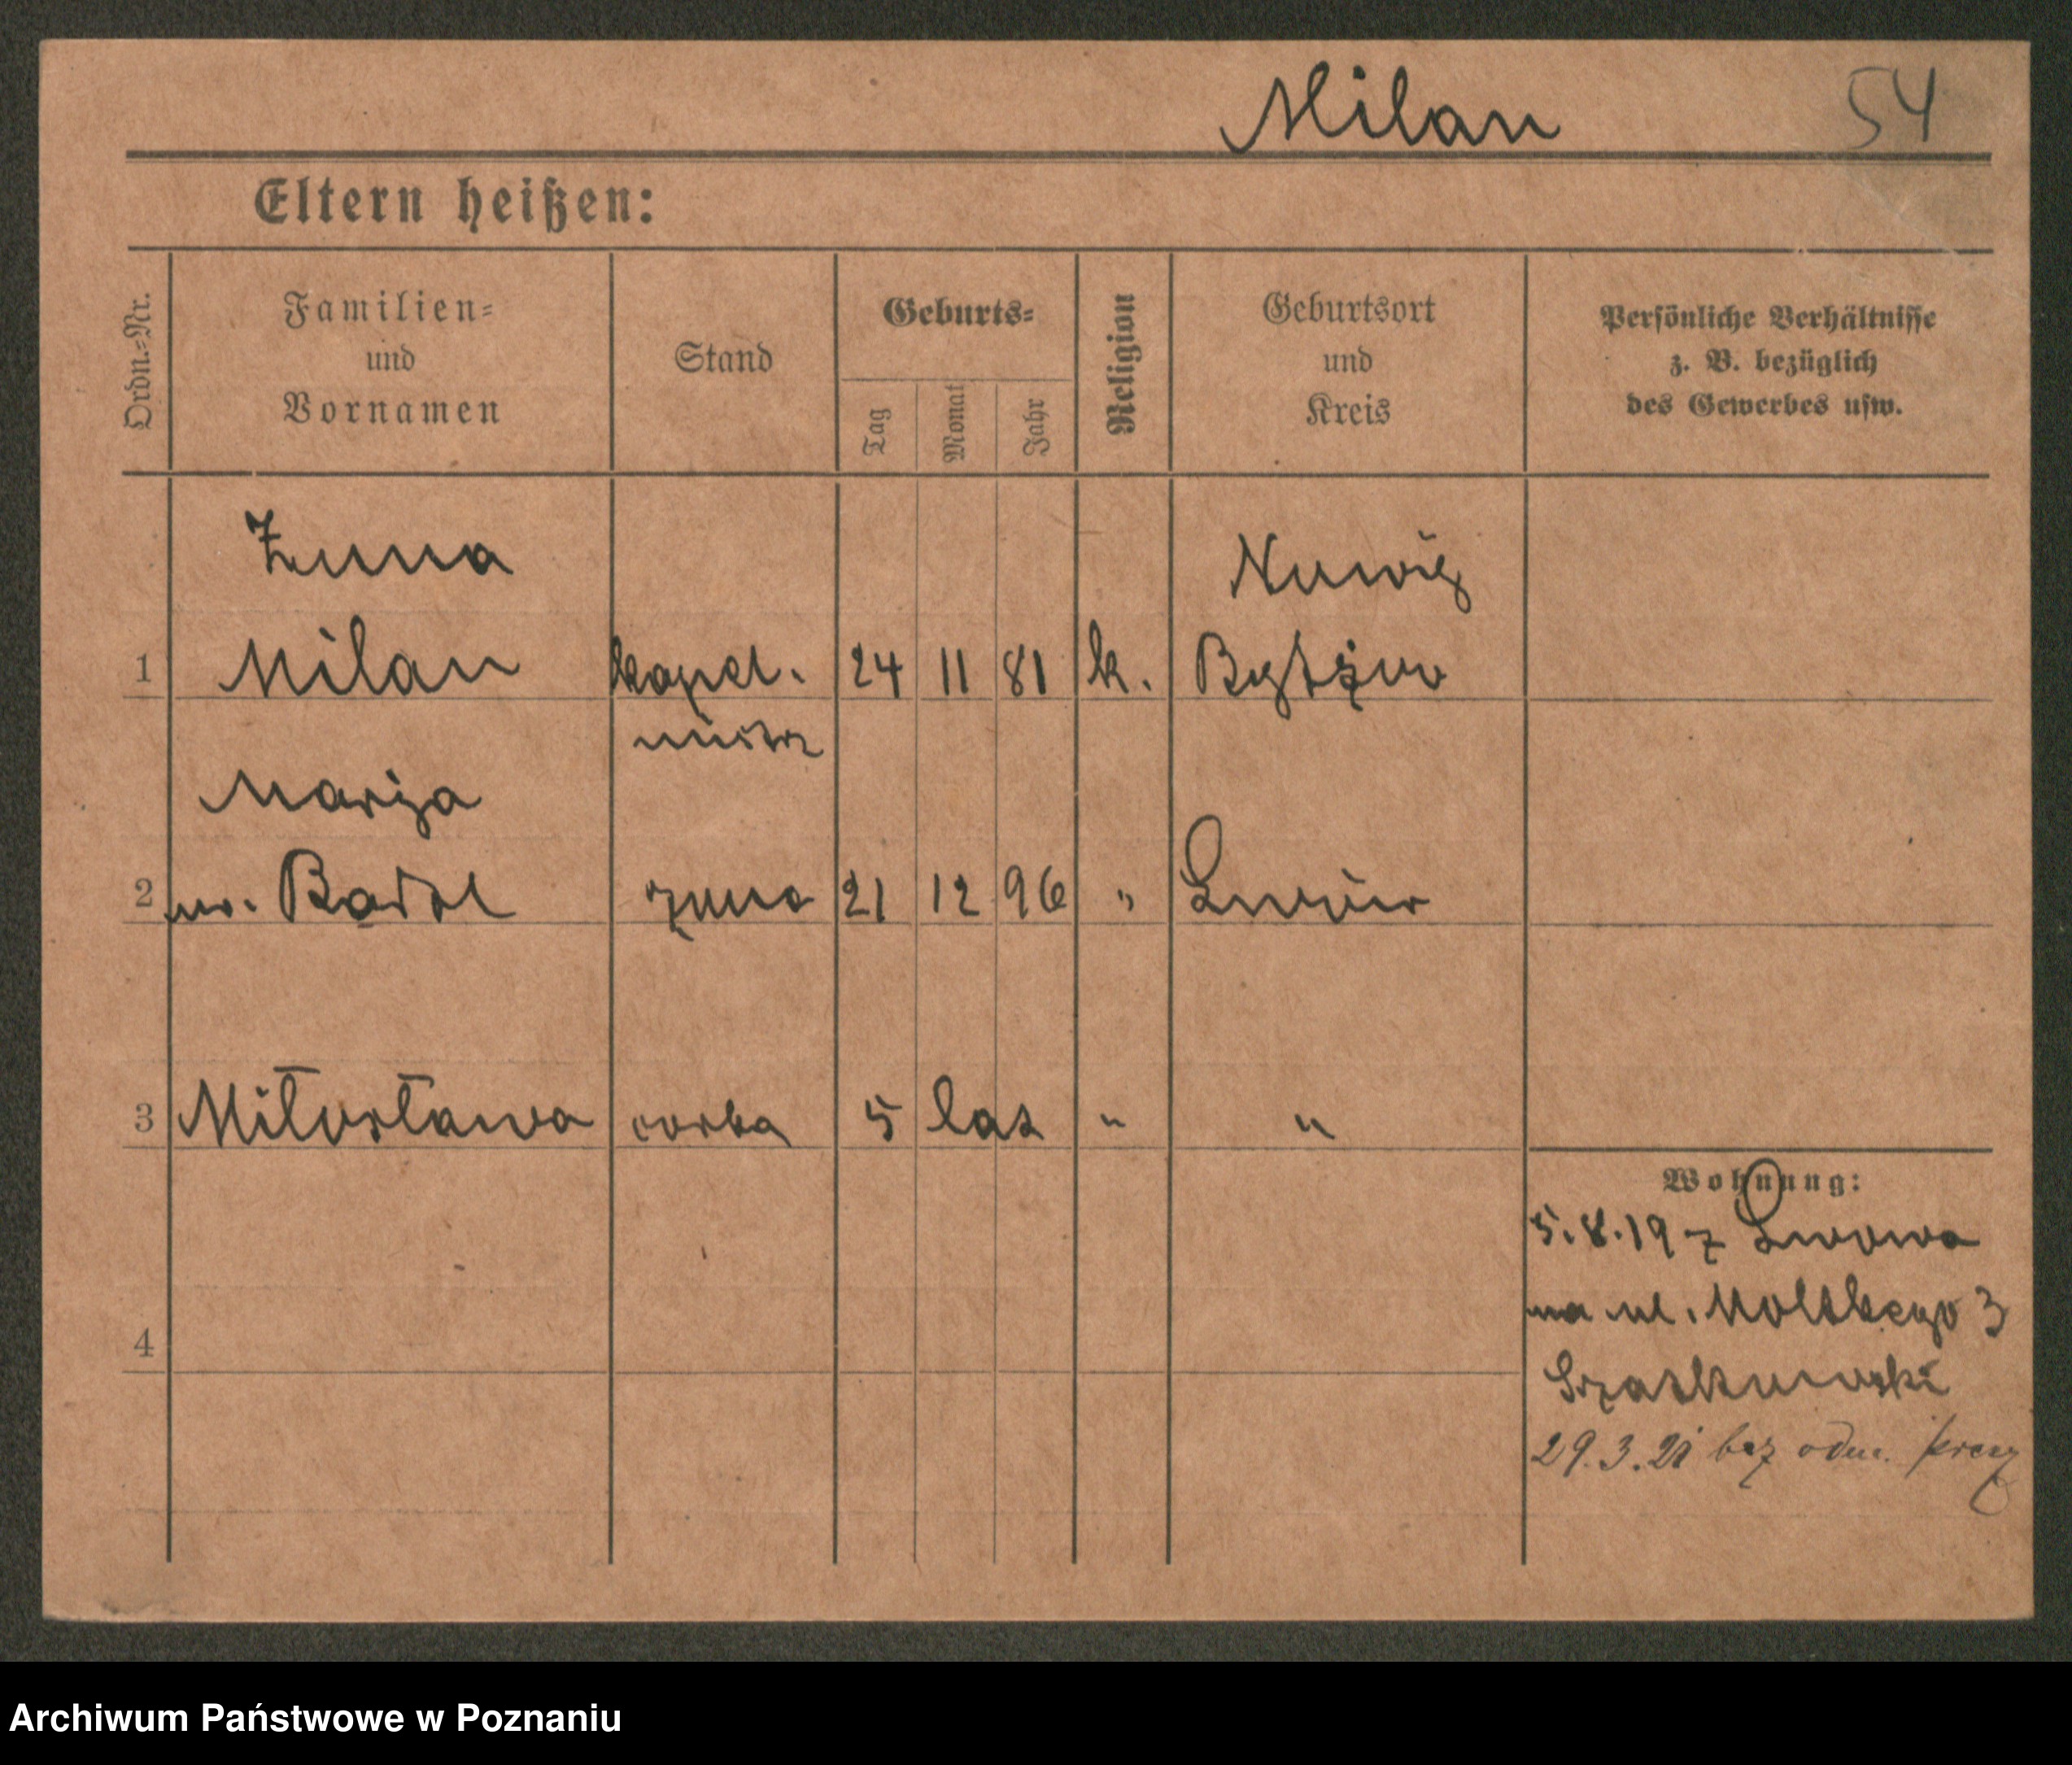 Milan 54
Eltern heißen:
Ordn.-Nr.
Familien-
und
Vornamen
Stand
Geburts-
Tag
Monat
Jahr
Religion
Geburtsort
und
Kreis
Persönliche Verhältnisse
z. B. bezüglich
des Gewerbes usw.
Zuna
1 Milan kapel. 24 11 81 k.
mistrz
Marja
2 ur. żona 21 12 96 " Lwów
3 Miłosława córka 5 lat " "
4
Wohnung:
5.8.19 z Lwowa
na ul. Moltkego 3
29.3.21 bez odm.
Archiwum Państwowe w Poznaniu